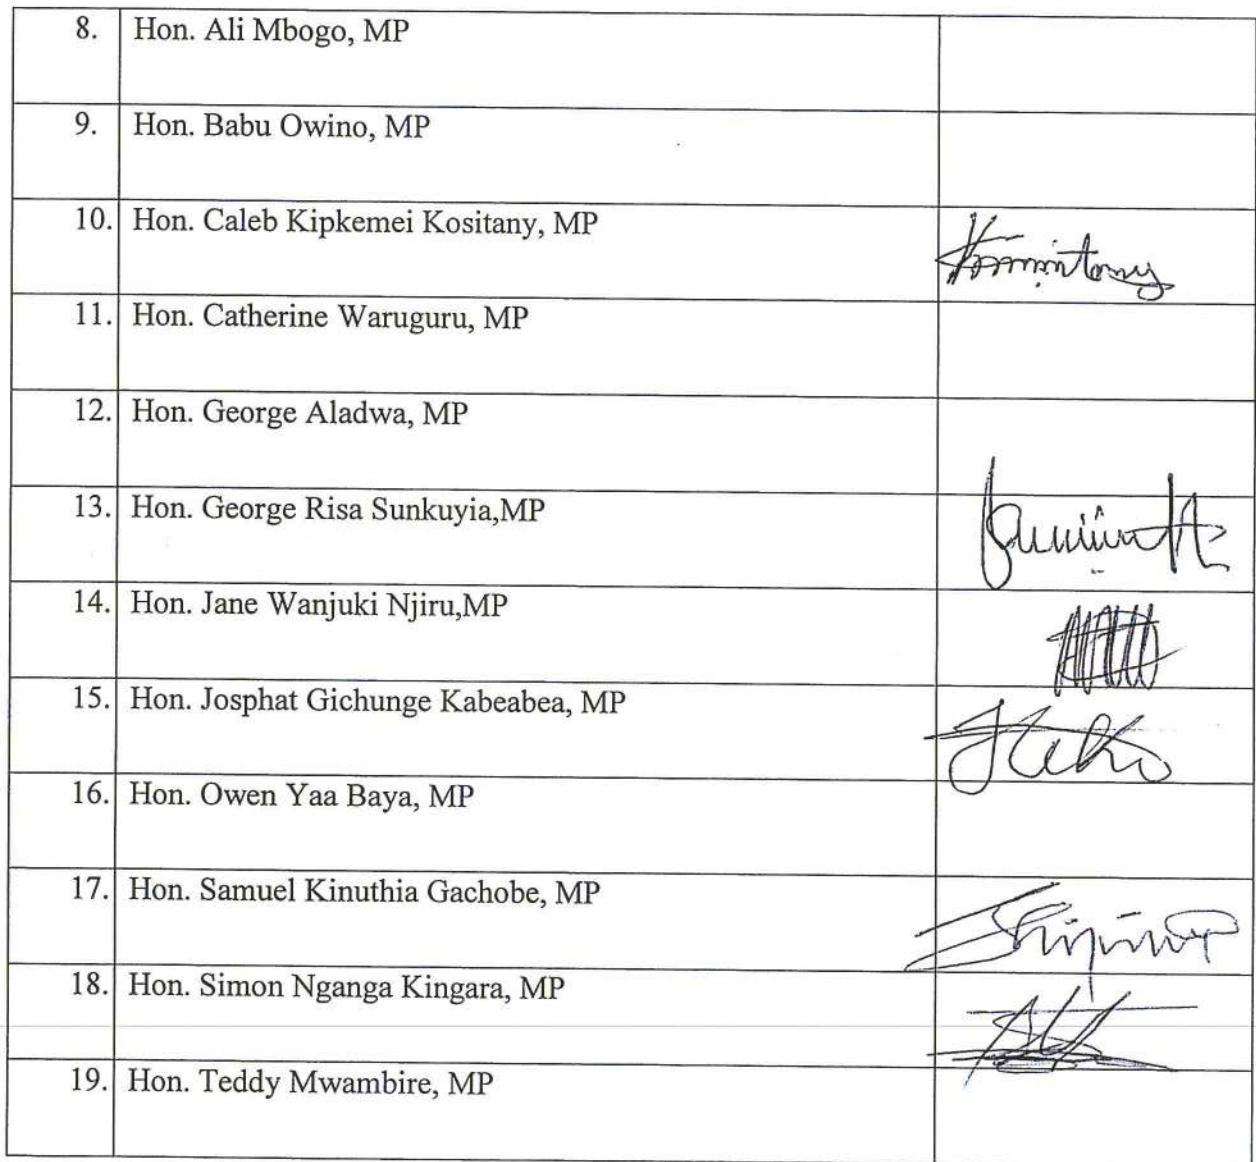 8. Hon. Ali Mbogo, MP
9. Hon. Babu Owino, MP
10. Hon. Caleb Kipkemei Kositany, MP
11. Hon. Catherine Waruguru, MP
12. Hon. George Aladwa, MP
13. Hon. George Risa Sunkuyia,MP
14. Hon. Jane Wanjuki Njiru,MP
15. Hon. Josphat Gichunge Kabeabea, MP
16. Hon. Owen Yaa Baya, MP
17. Hon. Samuel Kinuthia Gachobe, MP
18. Hon. Simon Nganga Kingara, MP
19. Hon. Teddy Mwambire, MP